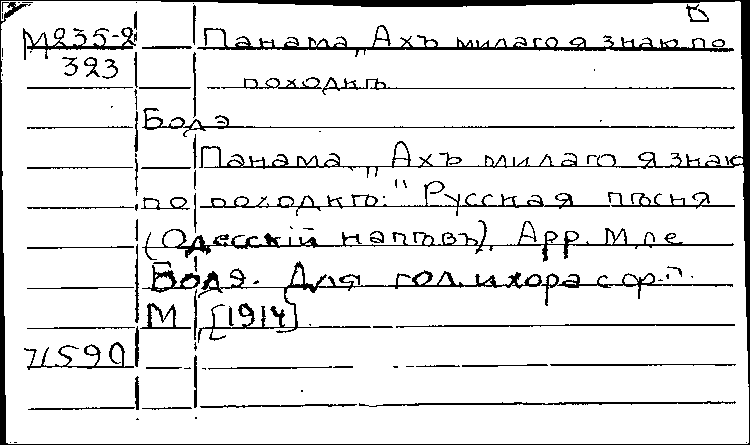 М235-2 Панама „Ахъ милаго я знаю по
323 походкѣ
Бодэ
Панама „Ахъ милаго я знаю
по походкѣ:" Русская пѣсня
(Одесскій напѣвъ). Арр. М. ле
Бодя. Для гол. и хора с ф.п.
М [1914]
71590